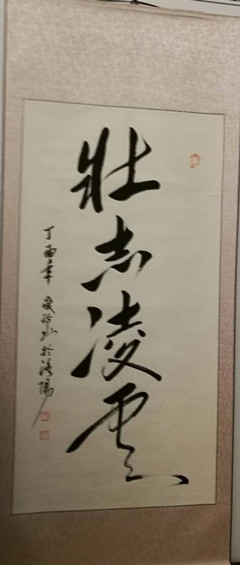 壮志凌云
丁酉年 于洛阳